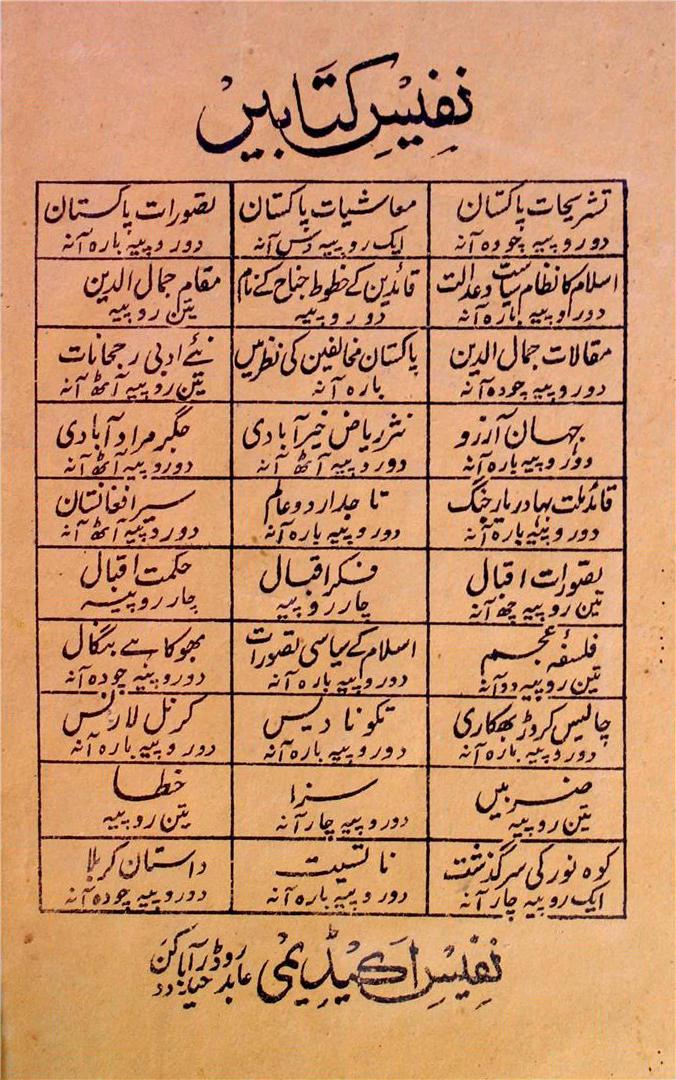 نفیس کتابیں
تشریحات پاکستان
دو روپیہ چودہ آنہ
معاشیات پاکستان
ایک روپیہ دس آنہ
تصورات پاکستان
دو روپیہ بارہ آنہ
اسلام کا نظام سیاست و عدالت
دو روپیہ بارہ آنہ
قائدین کے خطوط جناح کے نام
دو روپیہ
مقام جمال الدین
تین روپیہ
مقالات جمال الدین
دو روپیہ چودہ آنہ
پاکستان مخالفین کی نظر میں
بارہ آنہ
نئے ادبی رجحانات
تین روپیہ آٹھ آنہ
جہان آرزو
دو روپیہ بارہ آنہ
نثر ریاض خیرآبادی
دو روپیہ آٹھ آنہ
جگر مرادآبادی
دو روپیہ آٹھ آنہ
قائد ملت بہادر یار جنگ
دو روپیہ بارہ آنہ
تاجدار دو عالم
دو روپیہ بارہ آنہ
سیر افغانستان
دو روپیہ آٹھ آنہ
تصورات اقبال
تین روپیہ چھ آنہ
فکر اقبال
چار روپیہ
حکمت اقبال
چار روپیہ
فلسفۂ عجم
تین روپیہ دو آنہ
اسلام کے سیاسی تصورات
دو روپیہ بارہ آنہ
بھوکا ہے بنگال
دو روپیہ چودہ آنہ
چالیس کروڑ بھکاری
دو روپیہ بارہ آنہ
تکونا دیس
دو روپیہ بارہ آنہ
کرنل لارنس
دو روپیہ بارہ آنہ
ضربیں
تین روپیہ
سزا
دو روپیہ چار آنہ
خطا
تین روپیہ
کوہ نور کی سرگذشت
ایک روپیہ چار آنہ
ناتسیت
دو روپیہ بارہ آنہ
داستان کربلا
دو روپیہ چودہ آنہ
نفیس اکیڈیمی
عابد روڈ حیدرآباد دکن